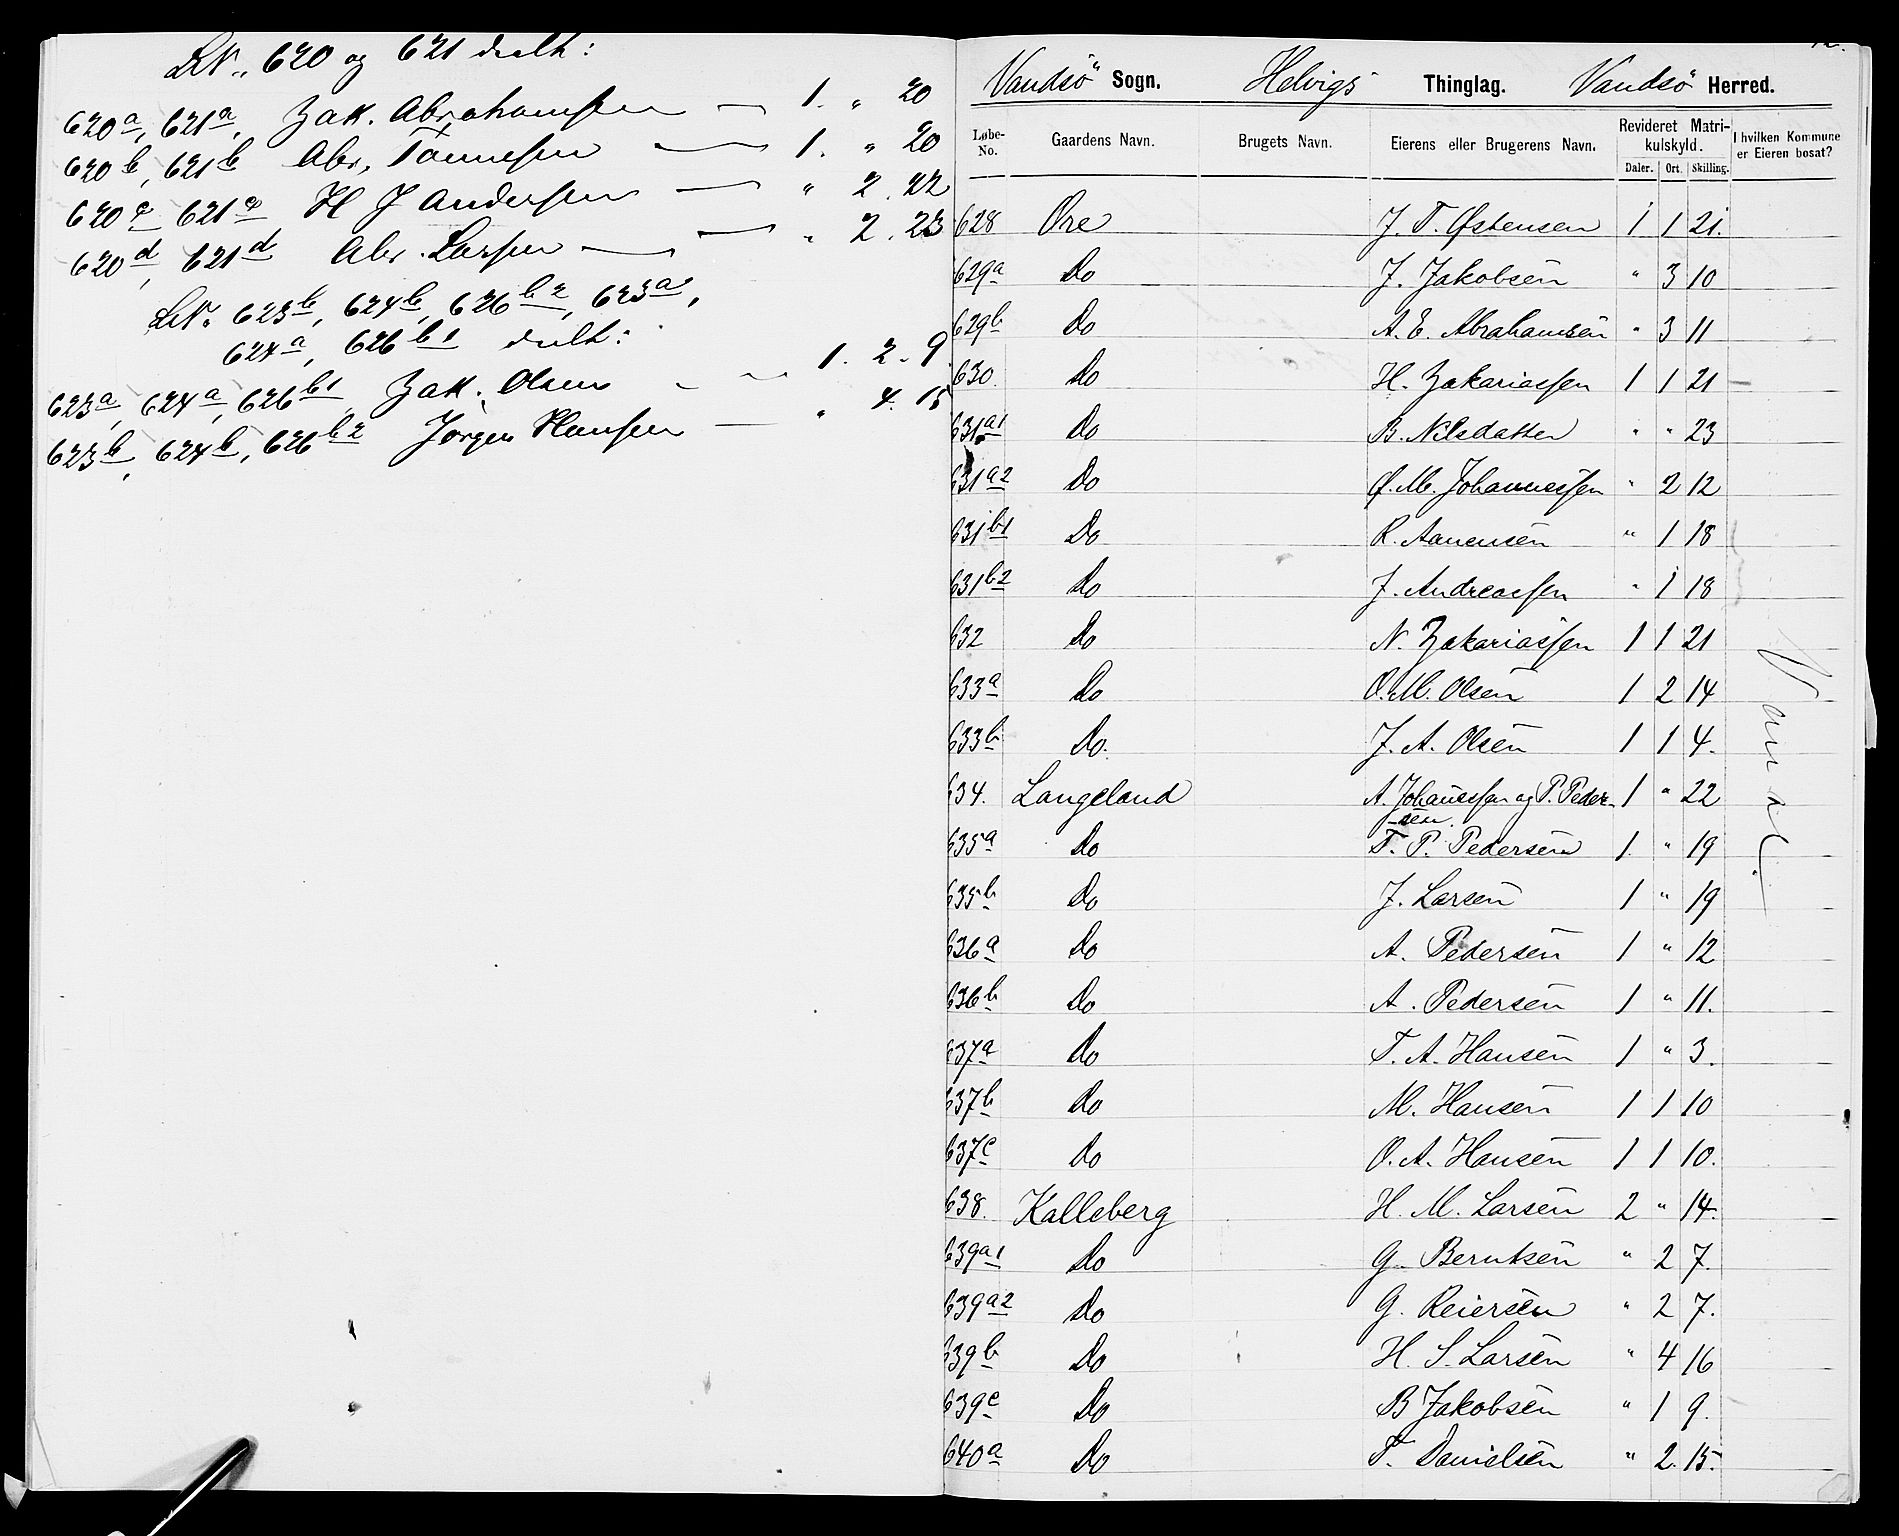 LN. 620 og 621 deelt:
620a, 621a, Zak. Abrahamsen — 1. " 20
620b, 621b Abr. Tønnesen — 1. " 20
620c, 621c H J Andersen — " 2. 22
620d, 621d Abr. Larsen — — " 2. 23
LN. 623b, 624b, 626b2, 623a,
624a, 626b1 deelt:
623a, 624a, 626b1 Zak. Olsen - - 1. 2. 9
623b, 624b, 626b2 Jørgen Hansen — " 4. 15
Vandsö Sogn. Helvigs Thinglag. Vandsö Herred.
Løbe-No. Gaardens Navn. Brugets Navn. Eierens eller Brugerens Navn. Revideret Matrikulskyld. I hvilken Kommune er Eieren bosat?
Daler. Ort. Skilling.
628 Øre J. T. Østensen 1 1 21.
629a Do J. Jakobsen " 3 10
629b Do A. E. Abrahamsen " 3 11
630. Do H. Zakariassen 1 1 21
631a1 Do B. Nilsdatter " " 23
631a2 Do Ø. M. Johannessen " 2 12
631b1 Do R. Aanensen " 1 18
631b2 Do J. Andreassen " 1 18
632 Do N. Zakariassen 1 1 21
633a Do O. M. Olsen 1 2 14
633b Do. J. A. Olsen 1 1 4.
634. Langeland A. Johanessen og P. Peder- 1 " 22
-sen.
635a Do T. P. Pedersen 1. " 19
635b Do J. Larsen 1 " 19
636a Do A. Pedersen 1 " 12
636b Do A. Pedersen 1 " 11.
637a Do T. A. Hansen 1 " 3.
637b Do M. Hansen 1 1 10
637c Do O. A. Hansen 1 1 10.
638. Kalleberg H. M. Larsen 2 " 14.
639a1 Do G. Berntsen " 2 7.
639a2 Do G. Reiersen " 2 7.
639b Do H. S. Larsen " 4 16
639c Do B Jakobsen " 1 9.
640a Do T. Danielsen " 2. 15.